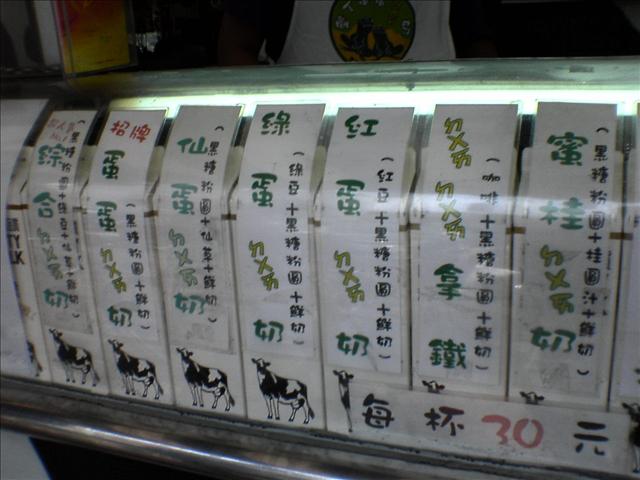 綜合ㄉㄨㄞ奶
(黑糖粉圓+綠豆+仙草+鮮奶)
招牌蛋蛋奶
(黑糖粉圓+鮮奶)
仙蛋ㄉㄨㄞ奶
(黑糖粉圓+仙草+鮮奶)
綠蛋ㄉㄨㄞ奶
(綠豆+黑糖粉圓+鮮奶)
紅蛋ㄉㄨㄞ奶
(紅豆+黑糖粉圓+鮮奶)
ㄉㄨㄞㄉㄨㄞ拿鐵
(咖啡+黑糖粉圓+鮮奶)
蜜桂ㄉㄨㄞ奶
(黑糖粉圓+桂圓汁+鮮奶)
每杯30元